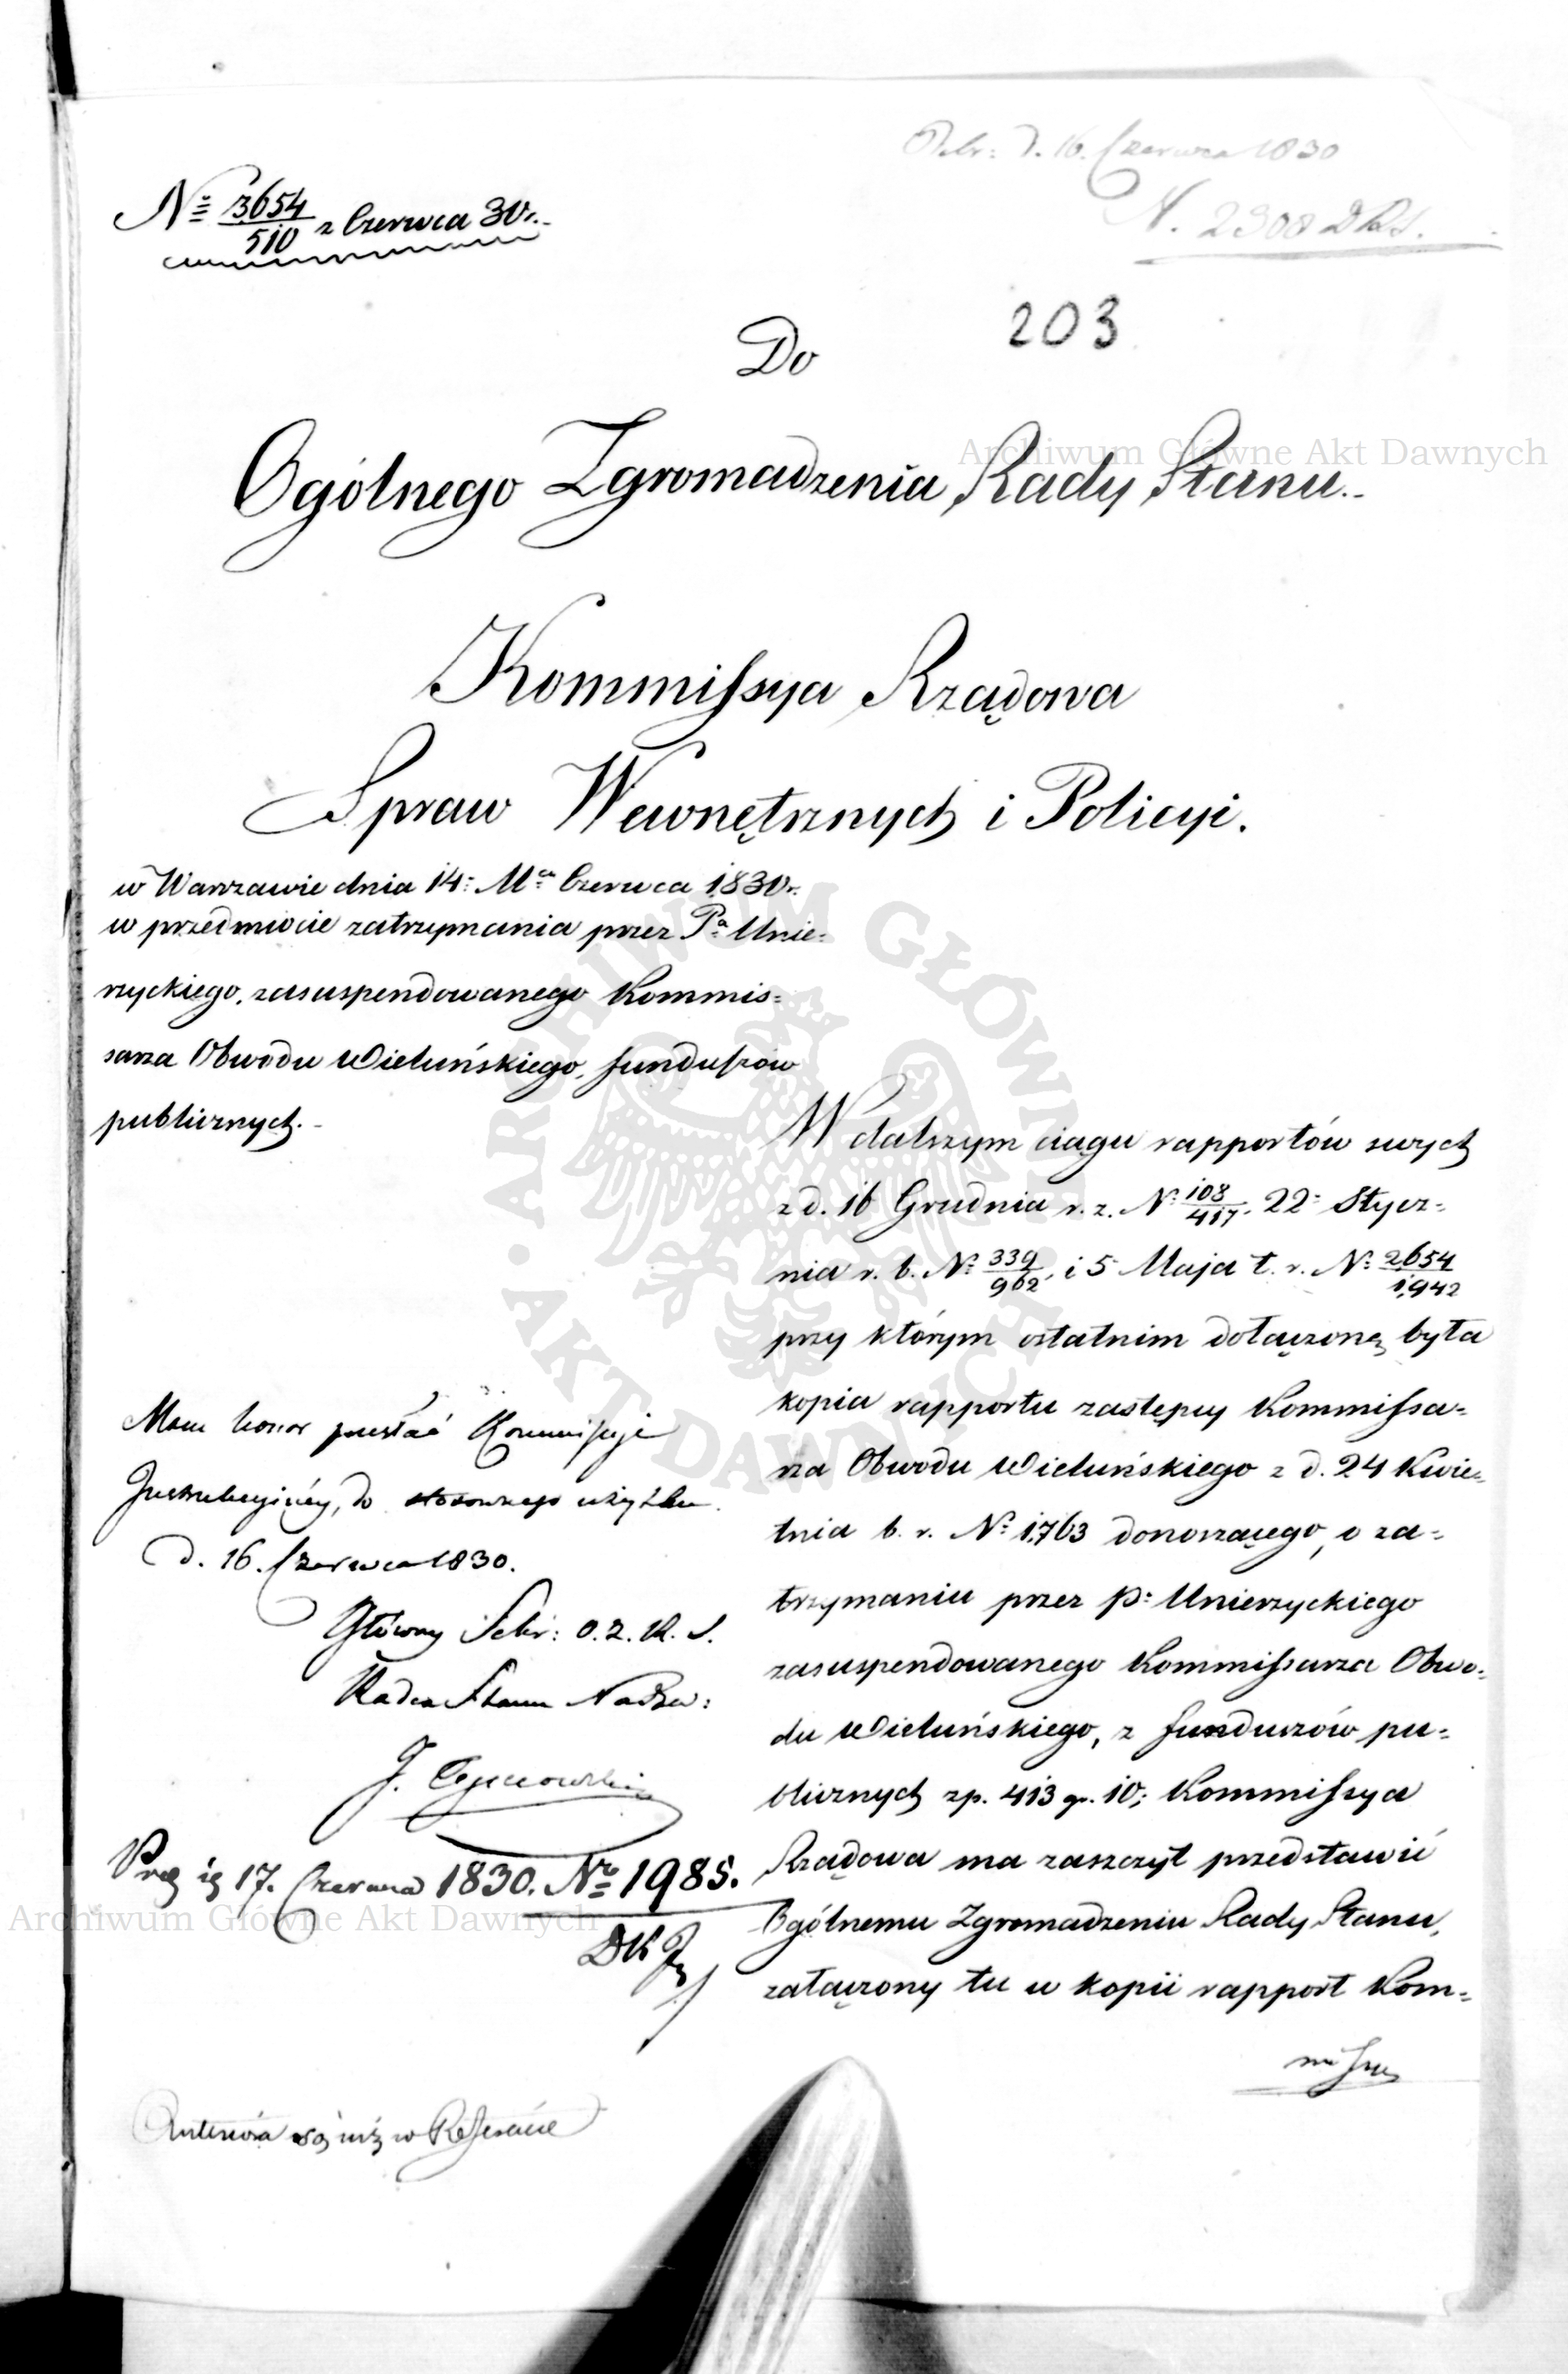 Odbr: d. 16. Czerwca 1830
N. 2308 DRS.
№ 3654/510 z Czerwca 30 r.
203
Do
Ogólnego Zgromadzenia Rady Stanu.
Kommissya Rządowa
Spraw Wewnętrznych i Policyi.
w Warszawie dnia 14: Mca Czerwca 1830 r.
w przedmiocie zatrzymania przez Pa Unie-
rzyckiego, zasuspendowanego Kommis-
sarza Obwodu Wieluńskiego, funduszów
publicznych.
W dalszym ciągu rapportów swych
z d. 16 Grudnia r. z. N: 108/417. 22: Stycz-
nia r. b. N: 339/962, i 5 Maja t. r. N: 2654/1942
przy którym ostatnim dołączoną była
kopia rapportu zastępcy Kommissa-
rza Obwodu Wieluńskiego z d. 24 Kwie-
tnia b. r. N: 1763 donoszącego, o za-
trzymaniu przez P: Unierzyckiego
zasuspendowanego Kommissarza Obwo-
du Wieluńskiego, z funduszów pu-
blicznych zp. 413 gr. 10; Kommissya
Rządowa ma zaszczyt przedstawić
Ogólnemu Zgromadzeniu Rady Stanu,
załączony tu w kopii rapport Kom-
missa
Mam honor przesłać Kommissyi
Instrukcyjnéy, do stosownego użytku.
d. 16. Czerwca 1830.
Główny Sekr: O. Z. R. S.
Radca Stanu Nadzw:
J.
17. Czerwca 1830. Nro 1985.
DKJ
są już w Referacie
Archiwum Główne Akt Dawnych
ARCHIWUM GŁÓWNE AKT DAWNYCH
Archiwum Główne Akt Dawnych